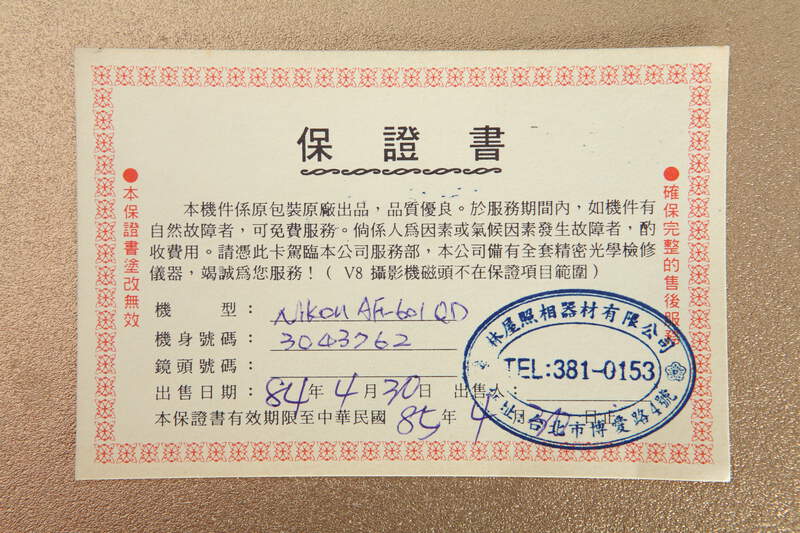 保證書
●本保證書塗改無效
●確保完整的售後服務
本機件係原包裝原廠出品，品質優良。於服務期間內，如機件有
自然故障者，可免費服務。倘係人為因素或氣候因素發生故障者，酌
收費用。請憑此卡駕臨本公司服務部，本公司備有全套精密光學檢修
儀器，竭誠為您服務！（ V8 攝影機磁頭不在保證項目範圍）
機型：Nikon AF-601 QD
機身號碼：3043762
鏡頭號碼：
出售日期：84年4月30日 出售人：
本保證書有效期限至中華民國 85年 4月 日止
林屋照相器材有限公司
TEL:381-0153
址：台北市博愛路4號